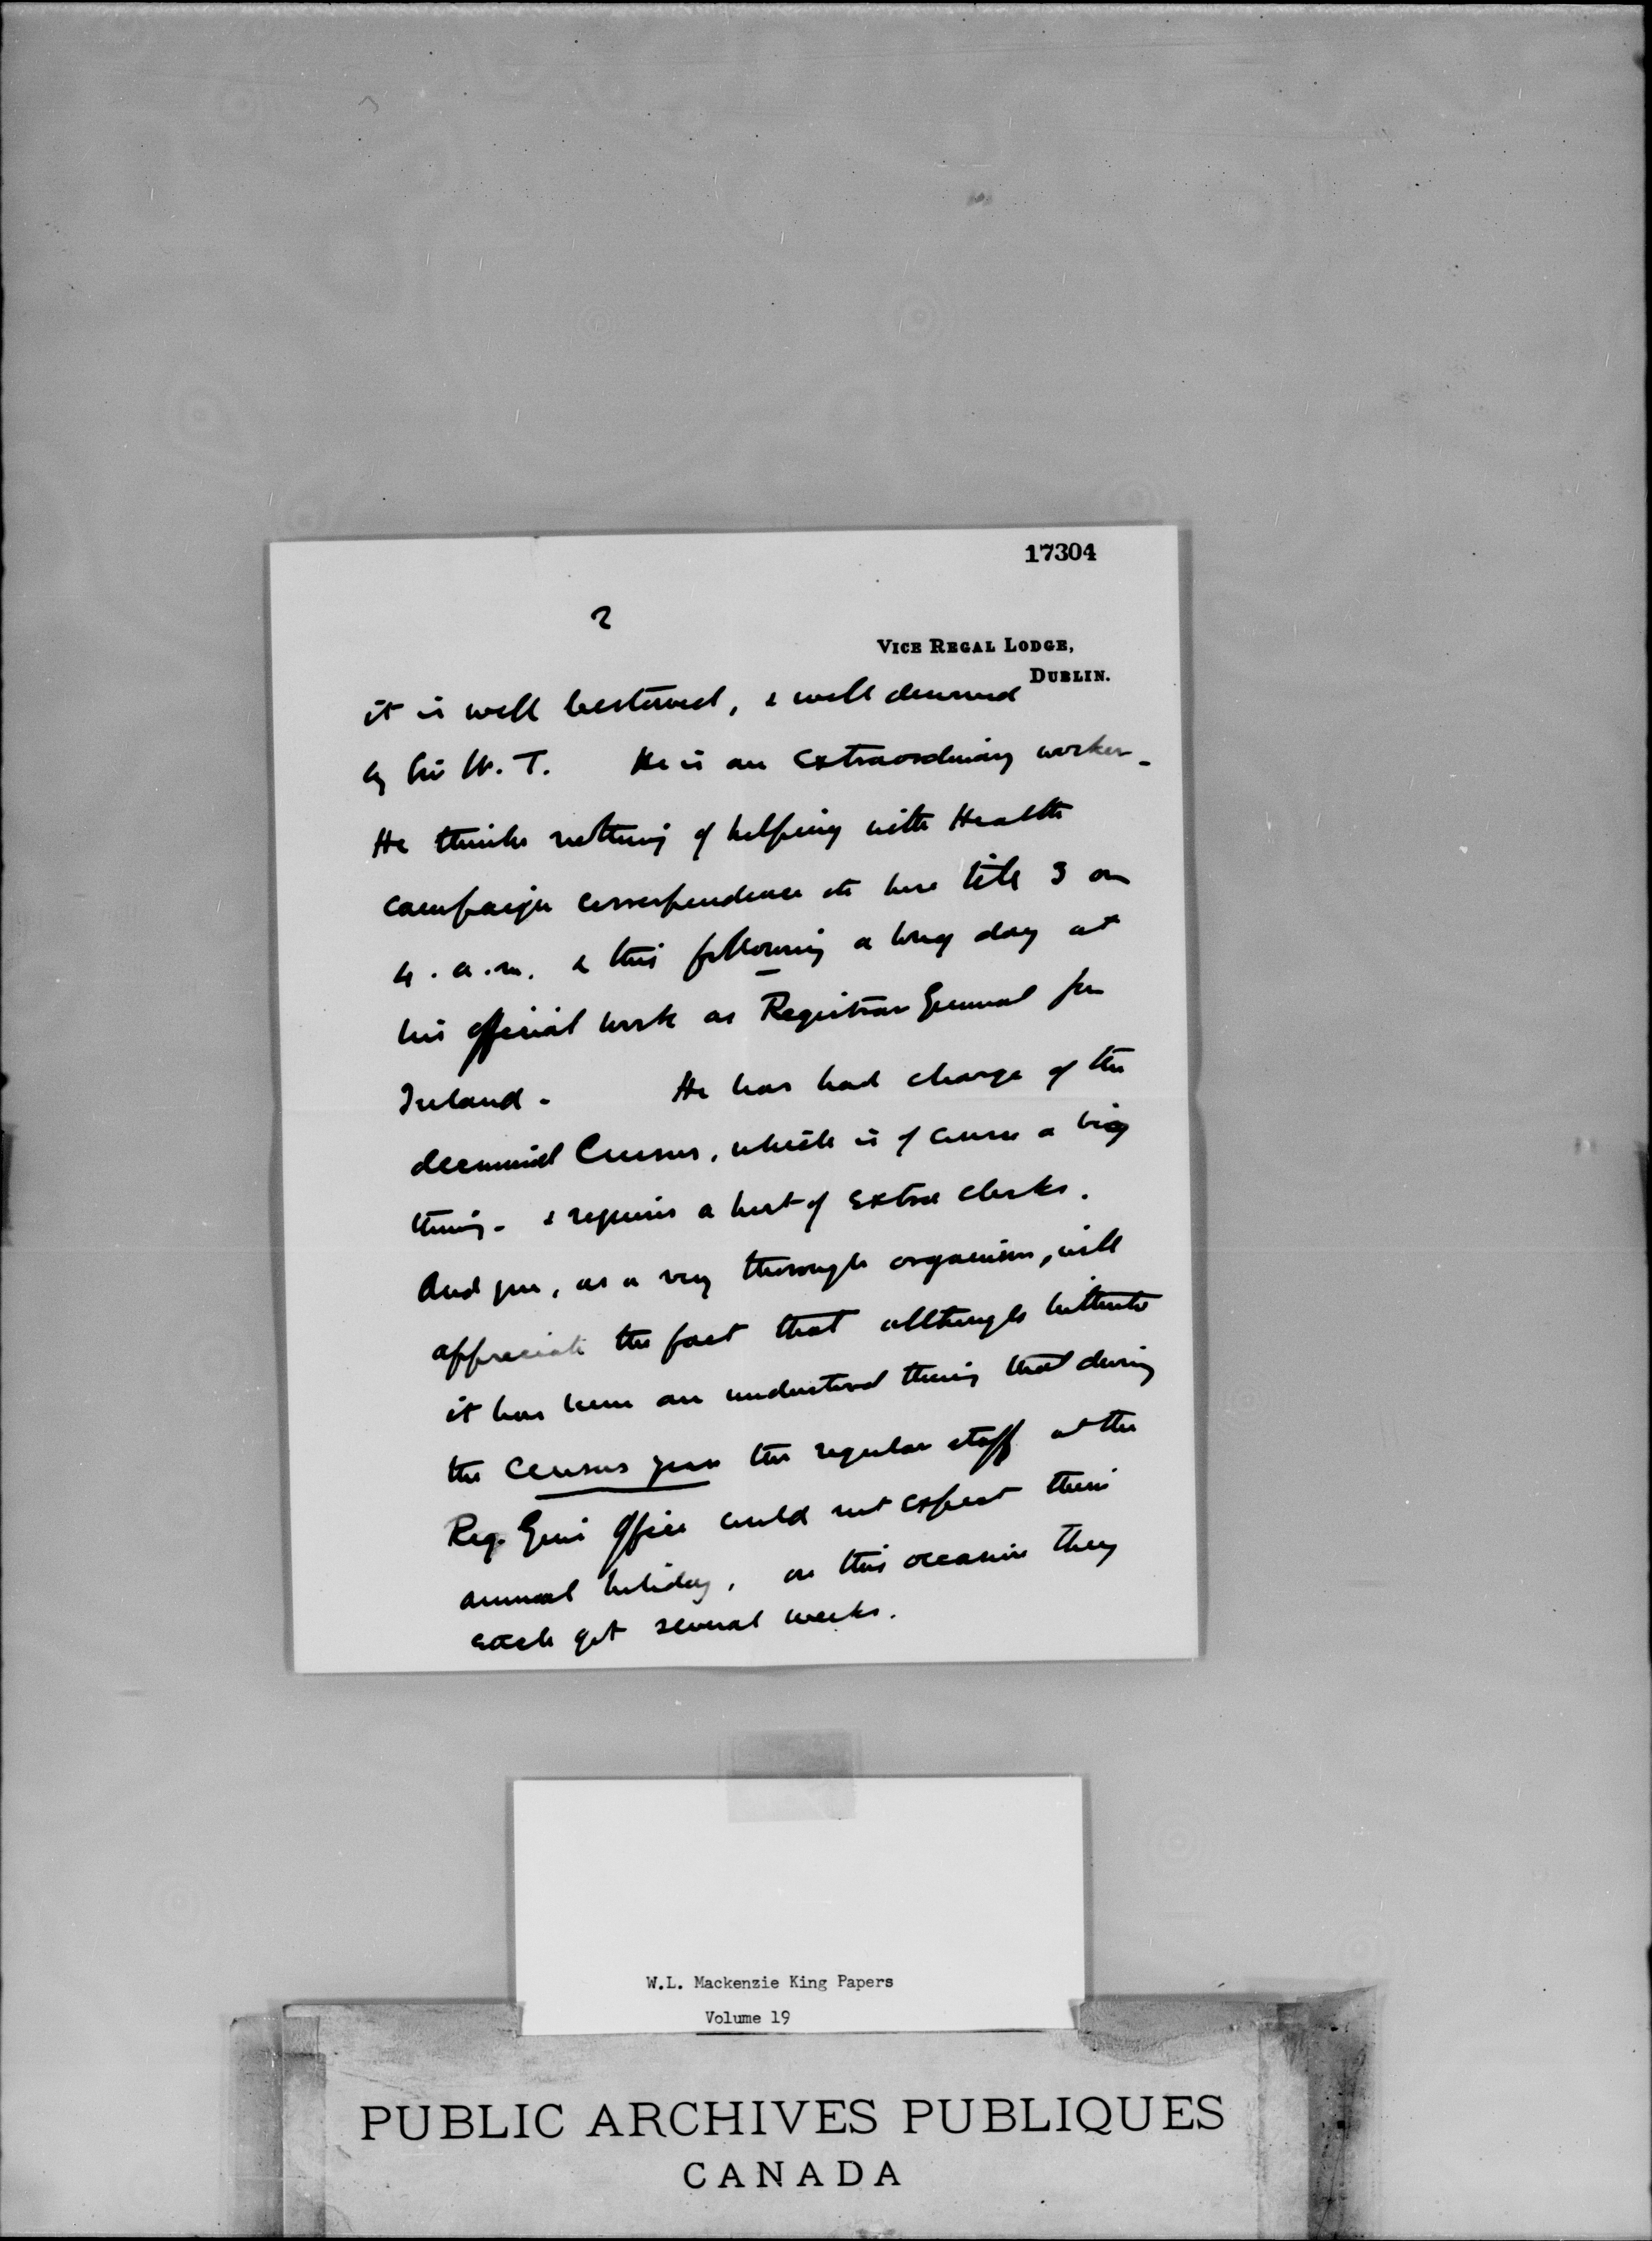 17304
2
VICE REGAL LODGE,
DUBLIN.
it is well bestowed, & well deserved
by Sir W. T. He is an extraordinary worker -
He thinks nothing of helping with Health
campaign correspondence etc here till 3 or
4. a.m. & this following a long day at
his official work as Registrar General for
Ireland - He has had charge of the
decennial Census, which is of course a big
thing - & requires a host of extra clerks.
And you, as a very thorough organiser, will
appreciate the fact that although hitherto
it has been an understood thing that during
the Census year the regular staff at the
Reg. Genl's Office could not expect their
annual holiday, on this occasion they
each get several weeks.
W.L. Mackenzie King Papers
Volume 19
PUBLIC ARCHIVES PUBLIQUES
CANADA